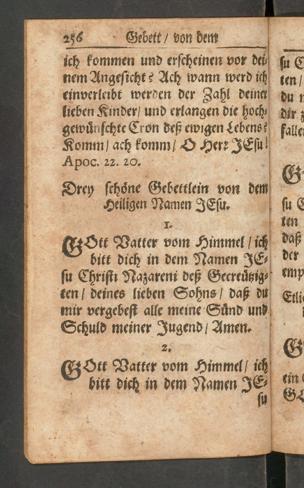 256 Gebett / von dem
ich kommen und erscheinen vor dei-
nem Angesicht? Ach wann werd ich
einverleibt werden der Zahl deiner
lieben Kinder / und erlangen die hoch-
gewünschte Cron deß ewigen Lebens?
Komm / ach komm / O Herr JEsu!
Apoc. 22. 20.
Drey schöne Gebettlein von dem
Heiligen Namen JEsu.
1.
GOtt Vatter vom Himmel / ich
bitt dich in dem Namen JE-
su Christi Nazareni deß Gecreützig-
ten / deines lieben Sohns / daß du
mir vergebest alle meine Sünd und
Schuld meiner Jugend / Amen.
2.
GOtt Vatter vom Himmel / ich
bitt dich in dem Namen JE-
su